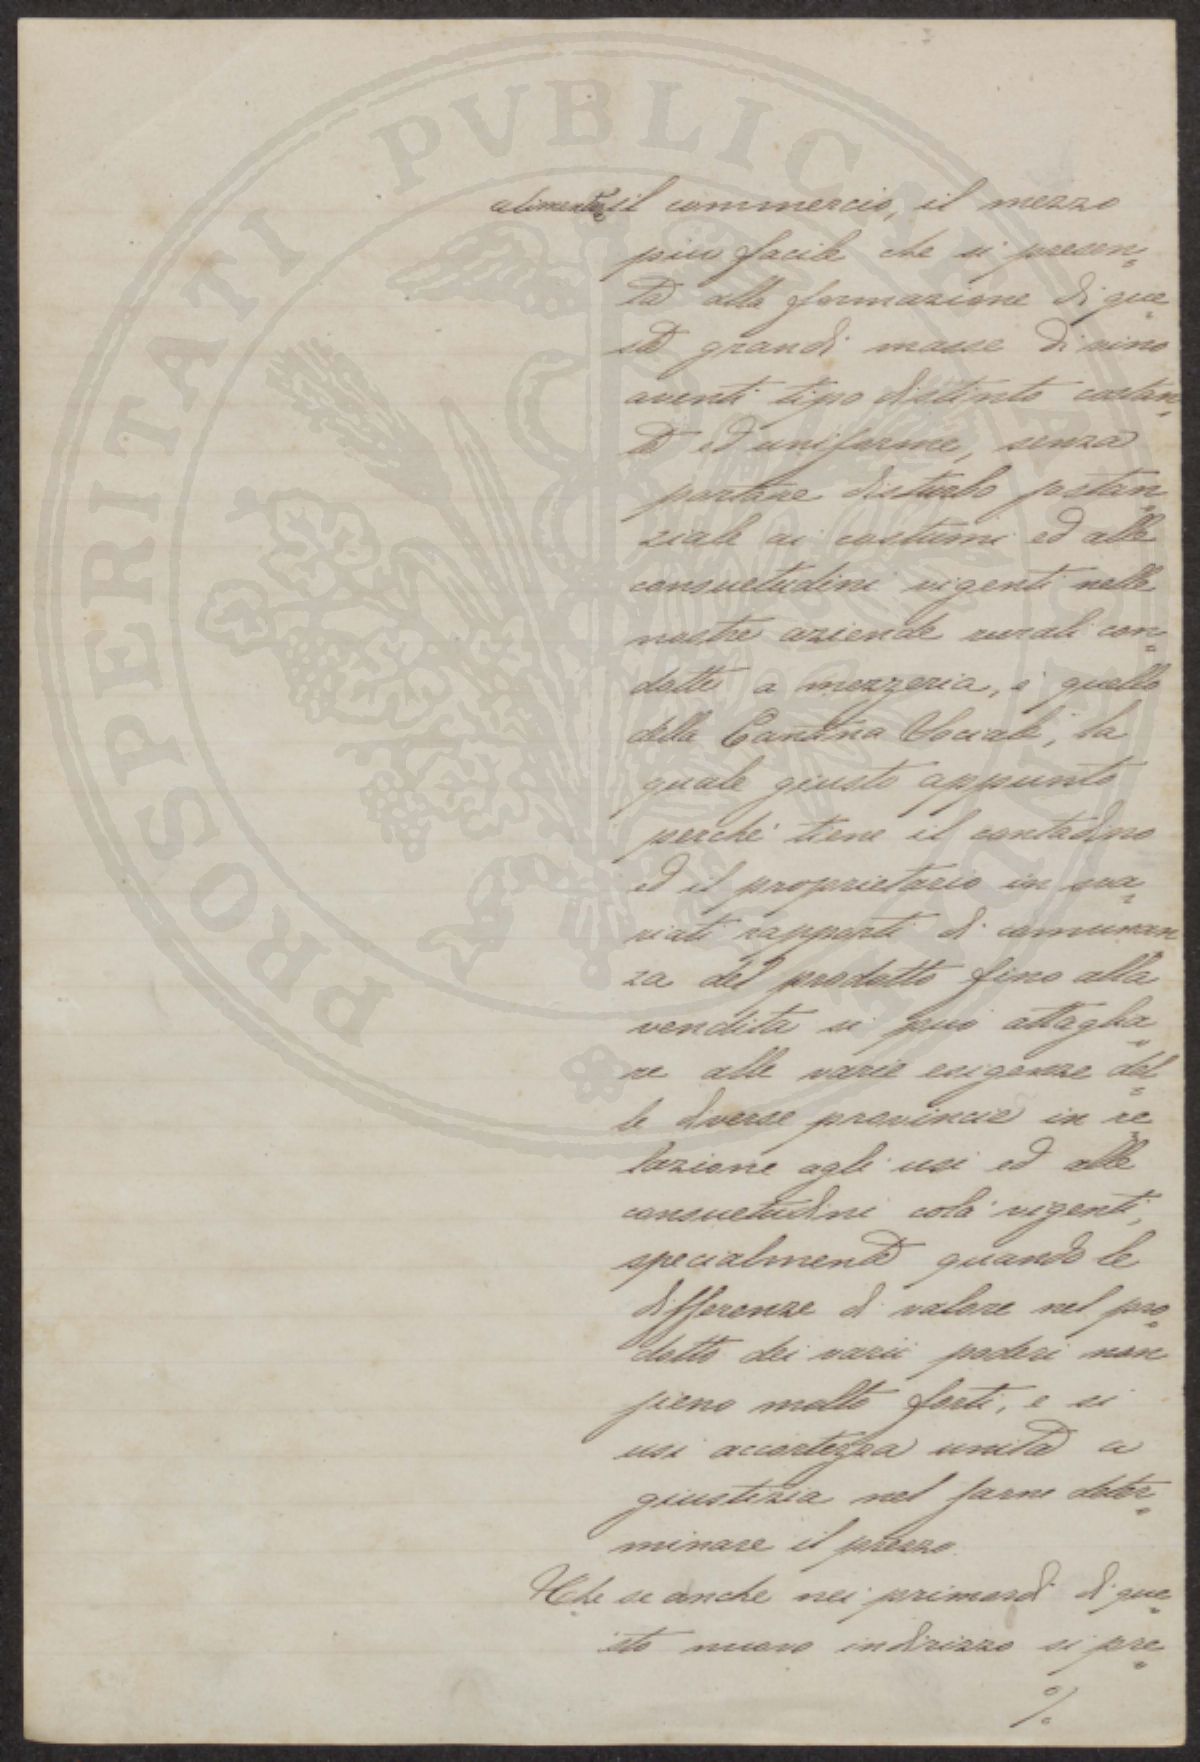 alimentare il commercio, il mezzo
piu facile che si presen=
ta alla formazione di que=
ste grandi masse di vino
aventi tipo distinto costan=
te ed uniforme, senza
portare disturbo sostan=
ziale ai costumi ed alle
consuetudini vigenti nelle
nostre aziende rurali con=
dotte a mezzeria, è quello
della Cantina Sociale, la
quale giusto appunto
perchè tiene il contadino
ed il proprietario in sva=
riati rapporti di comunan
za del prodotto fino alla
vendita si può attaglia=
re alle varie esigenze del=
le diverse provincie in re=
lazione agli usi ed alle
consuetudini colà vigenti,
specialmente quando le
differenze di valore nel pro=
dotto dei varii poderi non
sieno molto forti, e si
usi accortezza unita a
giustizia nel farne deter=
minare il prezzo.
Che se anche nei primordi di que=
sto nuovo indirizzo si pre=
%
PROSPERITATI PVBLICAE